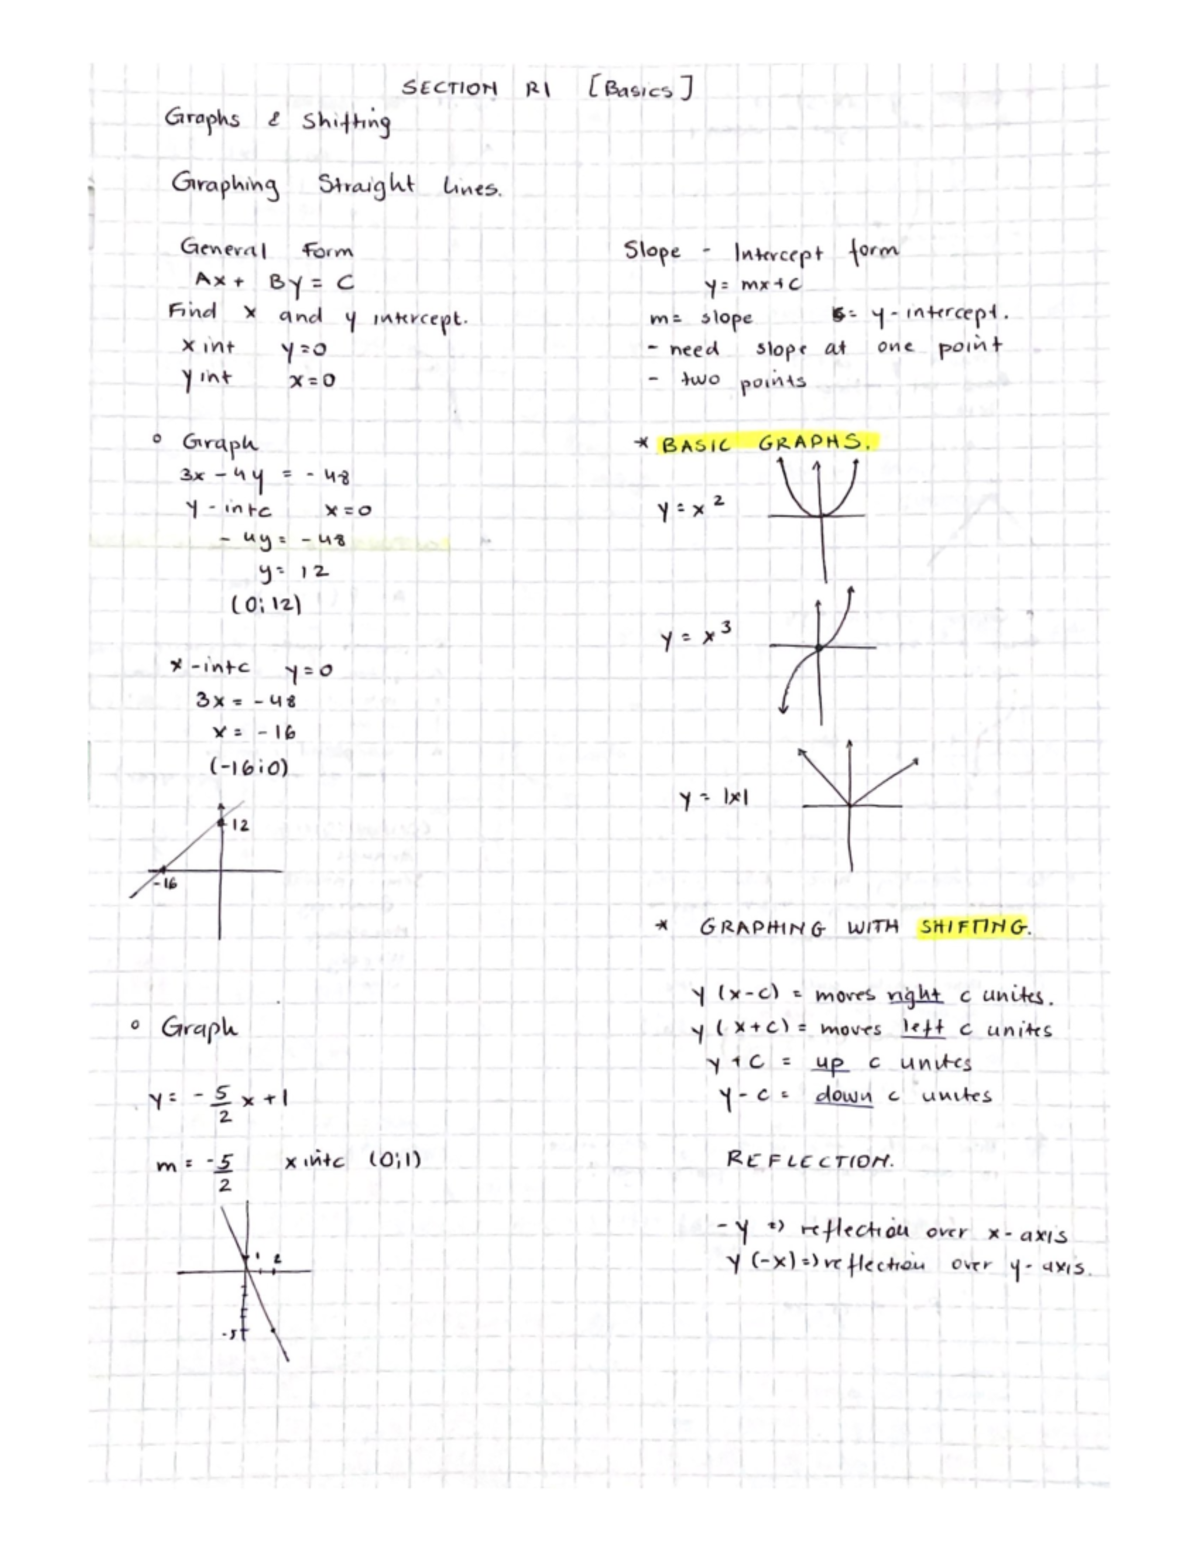 SECTION R1 [Basics]
Graphs & Shifting
Graphing Straight lines.
General Form
Ax + By = C
Find x and y intercept.
x int y=0
y int x=0
◦ Graph
3x - 4y = - 48
y - intc x=0
- 4y = - 48
y = 12
(0; 12)
x - intc y=0
3x = - 48
x = - 16
(-16;0)
12
-16
◦ Graph
y = - 5/2 x + 1
m = -5/2 x intc (0;1)
1 2
-5
Slope - Intercept form
y = mx + c
m = slope = y - intercept.
- need slope at one point
- two points
* BASIC GRAPHS.
y = x²
y = x³
y = |x|
* GRAPHING WITH SHIFTING.
y (x-c) = moves right c unites.
y (x+c) = moves left c unites
y + c = up c unites
y - c = down c unites
REFLECTION.
- y => reflection over x - axis
y (-x) => reflection over y - axis.